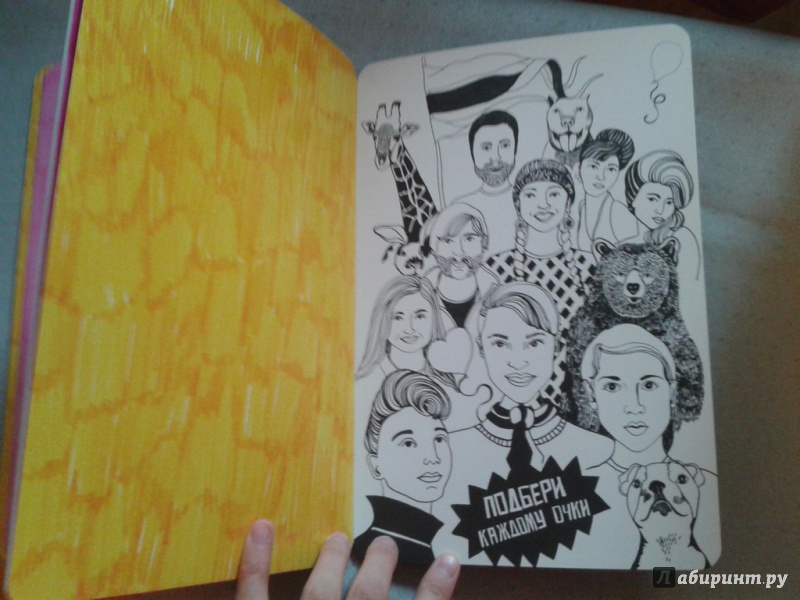 ПОДБЕРИ
КАЖДОМУ ОЧКИ
Лабиринт.ру